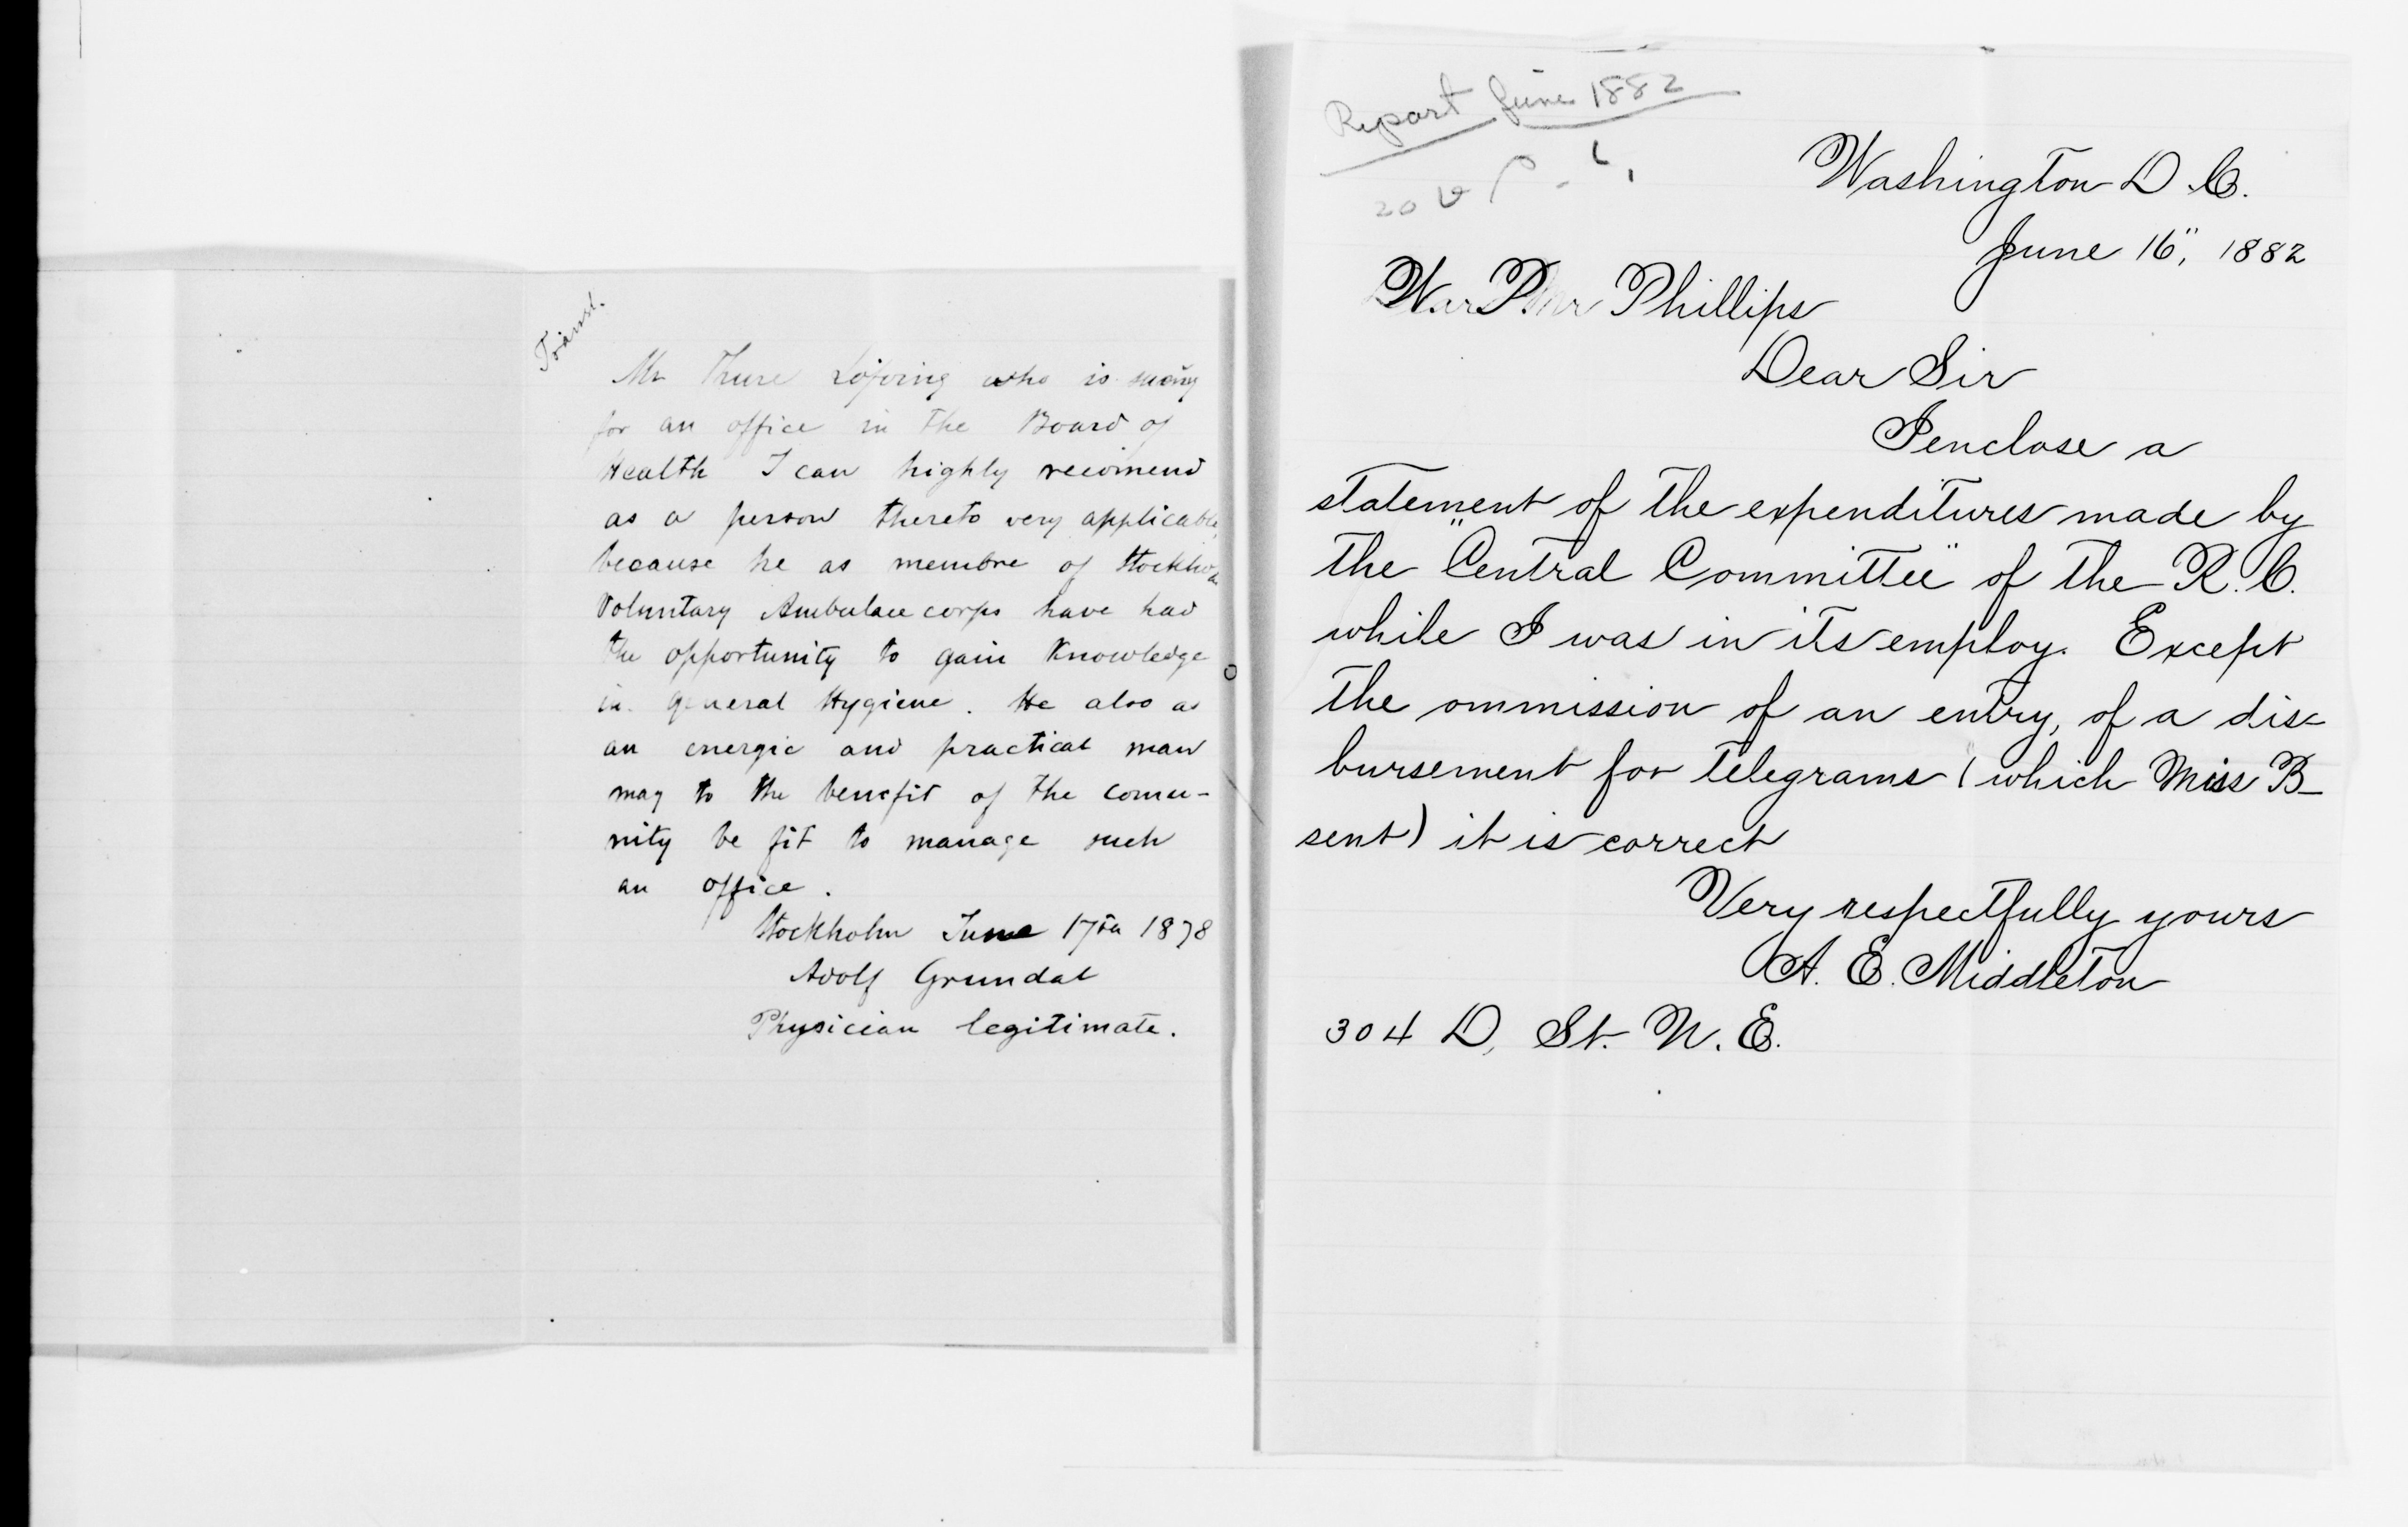 Transl.
Mr Thure Löfving who is suing
for an office in the Board of
Health I can highly recomend
as a person thereto very applicable,
because he as membre of Stockholm
Voluntary Ambulace corps have had
the opportunity to gain Knowledge
in general Hygiene. He also as
an energic and practical man
may to the benefit of the comu-
nity be fit to manage such
an office.
Stockholm June 17th 1878
Adolf Grundal
Physician legitimate.
Report June 1882
Washington D.C.
June 16", 1882
Phillips
Dear Sir
I enclose a
statement of the expenditures made by
the "Central Committee" of the R.C.
while I was in its employ. Except
the ommission of an entry, of a dis-
bursement for telegrams (which Miss B-
sent) it is correct
Very respectfully yours
A. E. Middleton
304 D, St. N. E.